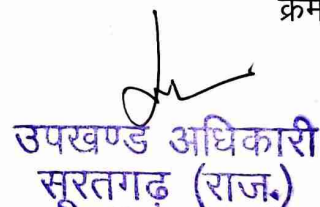 क्रम
उपखण्ड अधिकारी
सूरतगढ़ (राज.)